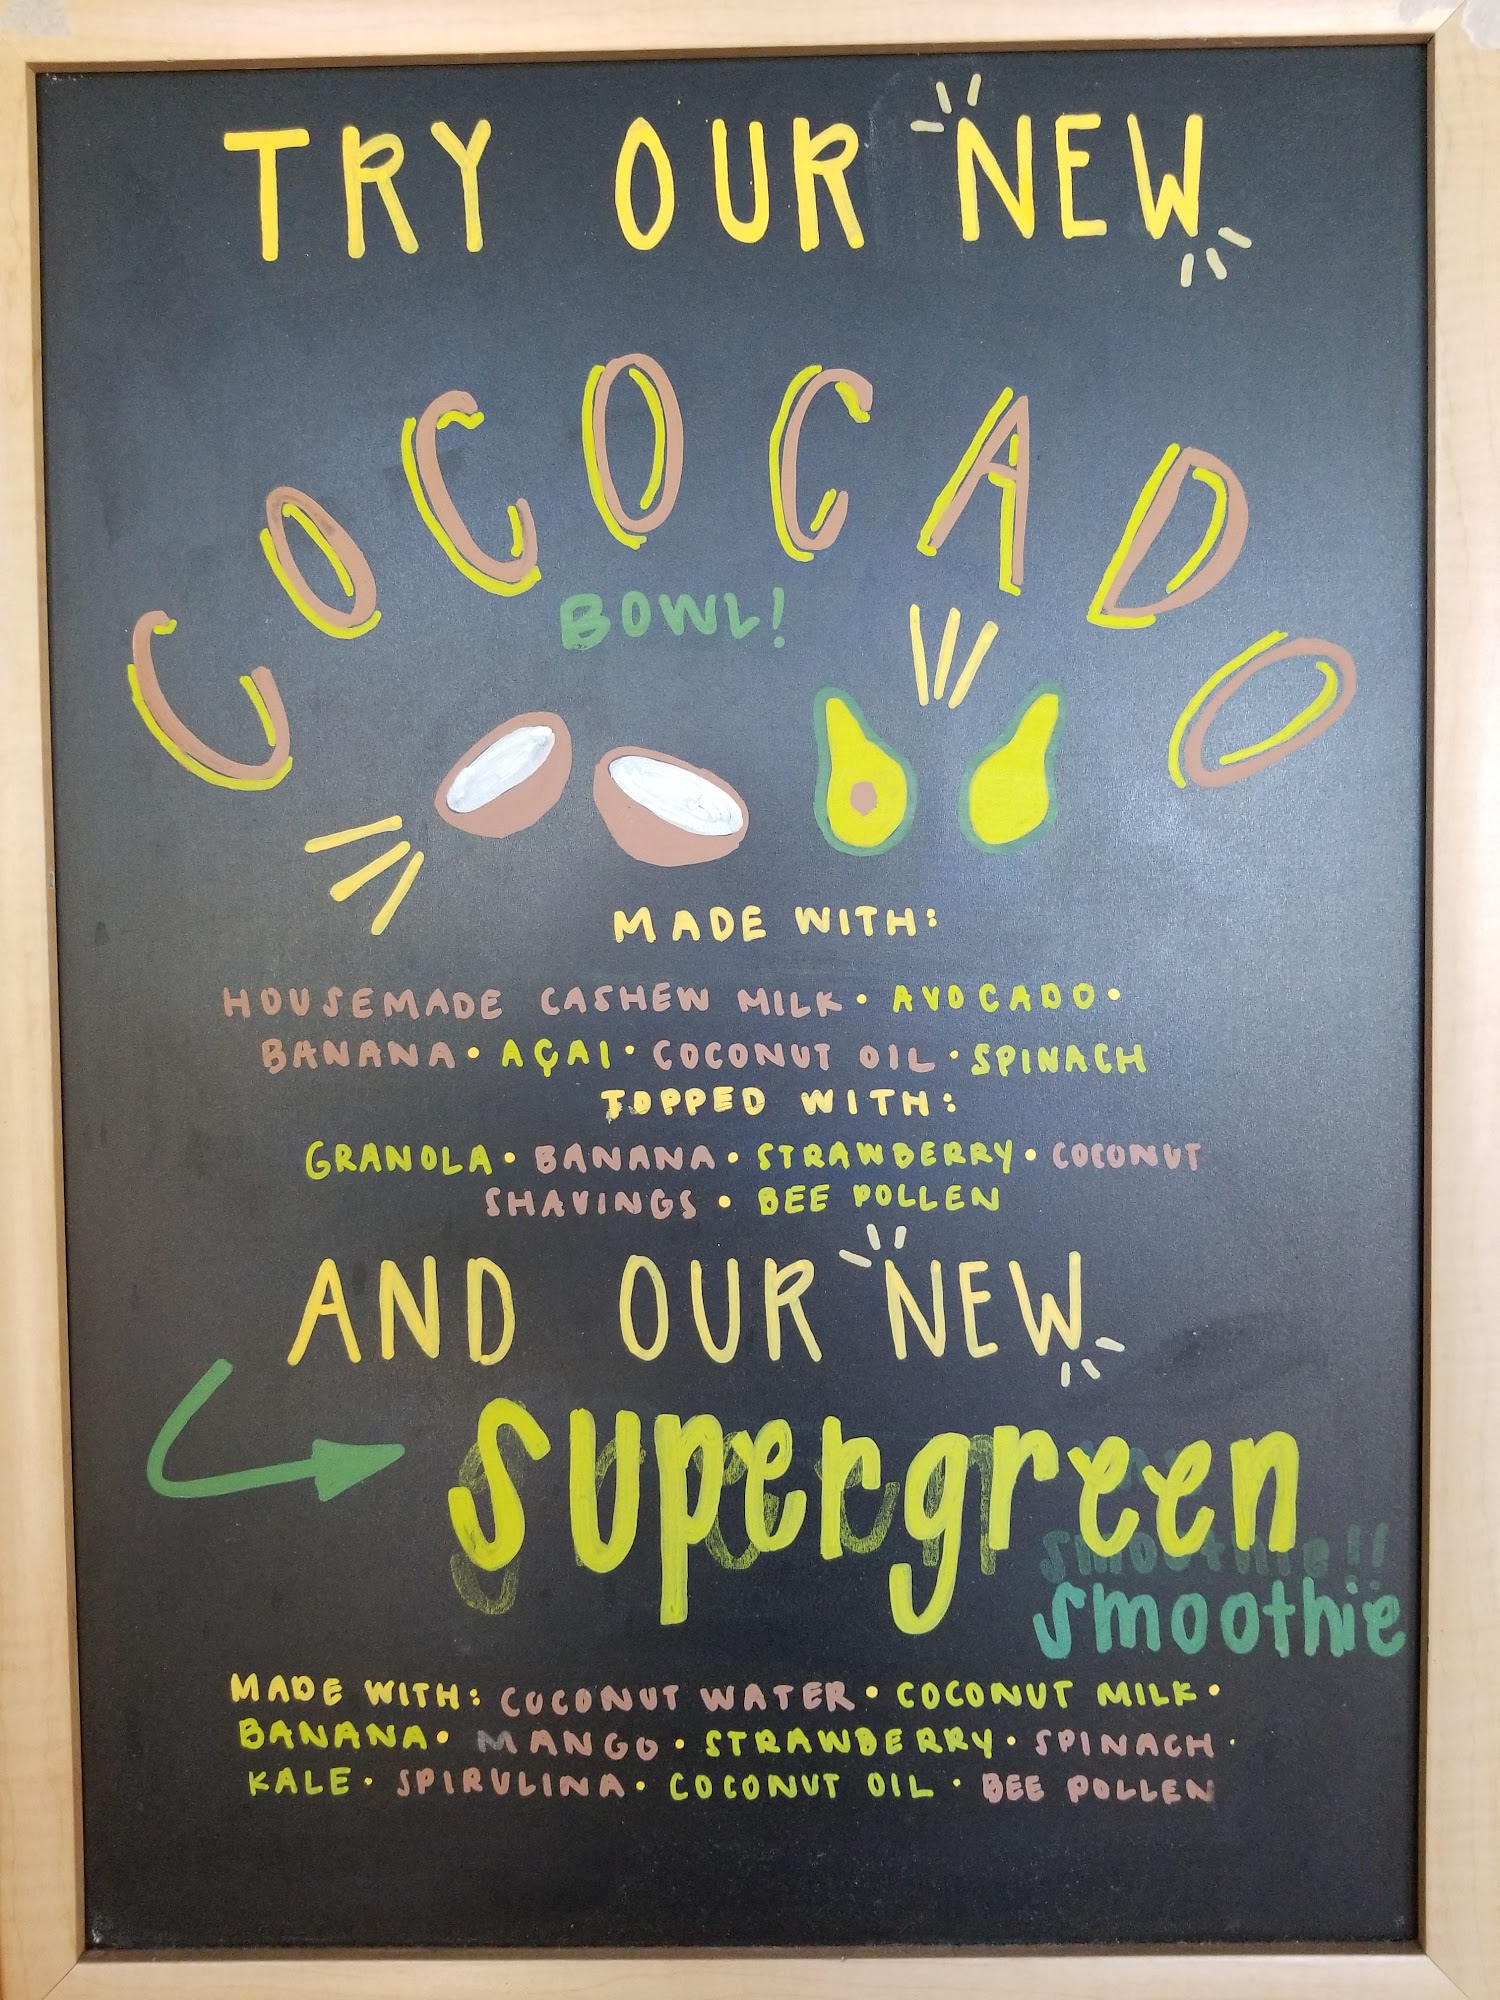 TRY OUR NEW
COCOCADO
BOWL!
MADE WITH:
HOUSEMADE CASHEW MILK • AVOCADO •
BANANA • AÇAI • COCONUT OIL • SPINACH
TOPPED WITH:
GRANOLA • BANANA • STRAWBERRY • COCONUT
SHAVINGS • BEE POLLEN
AND OUR NEW
supergreen
smoothie!!
smoothie
MADE WITH: COCONUT WATER • COCONUT MILK •
BANANA • MANGO • STRAWBERRY • SPINACH •
KALE • SPIRULINA • COCONUT OIL • BEE POLLEN